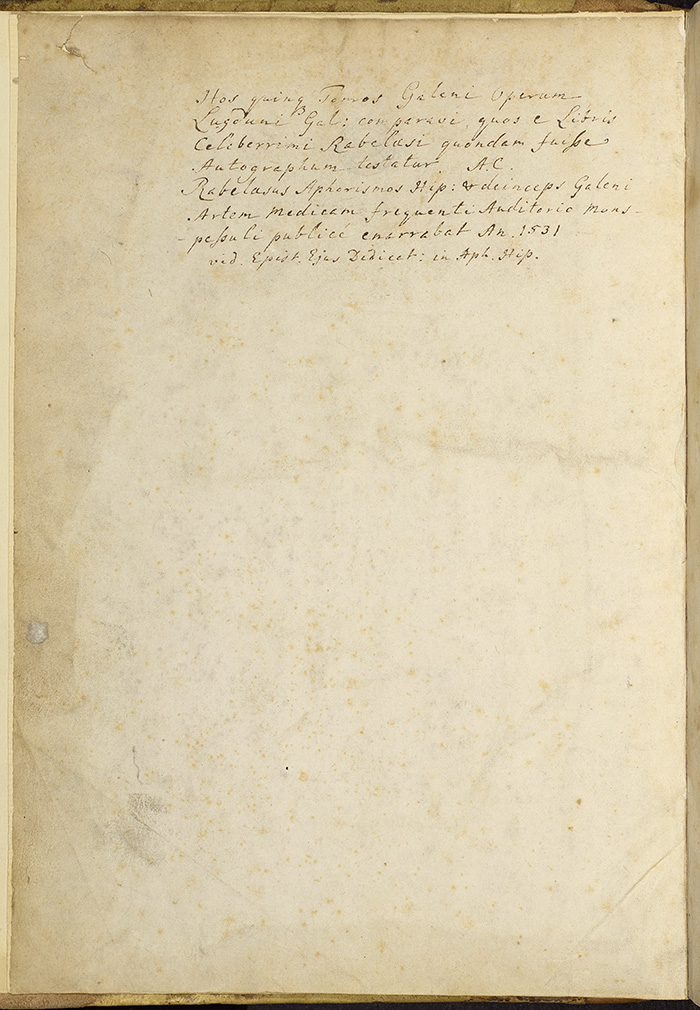 Hos quinq Tomos Galeni Operum
Lugduni Gal: comparavi, quos e Libris
Celeberrimi Rabelæsi quondam fuisse
Autographum testatur A.C.
Rabelæsus Aphorismos Hip: & deinceps Galeni
Artem Medicam frequenti Auditorio Mons-
-pessuli publicè enarrabat An. 1531
vid. Epist. Ejus Dedicat: in Aph. Hip.